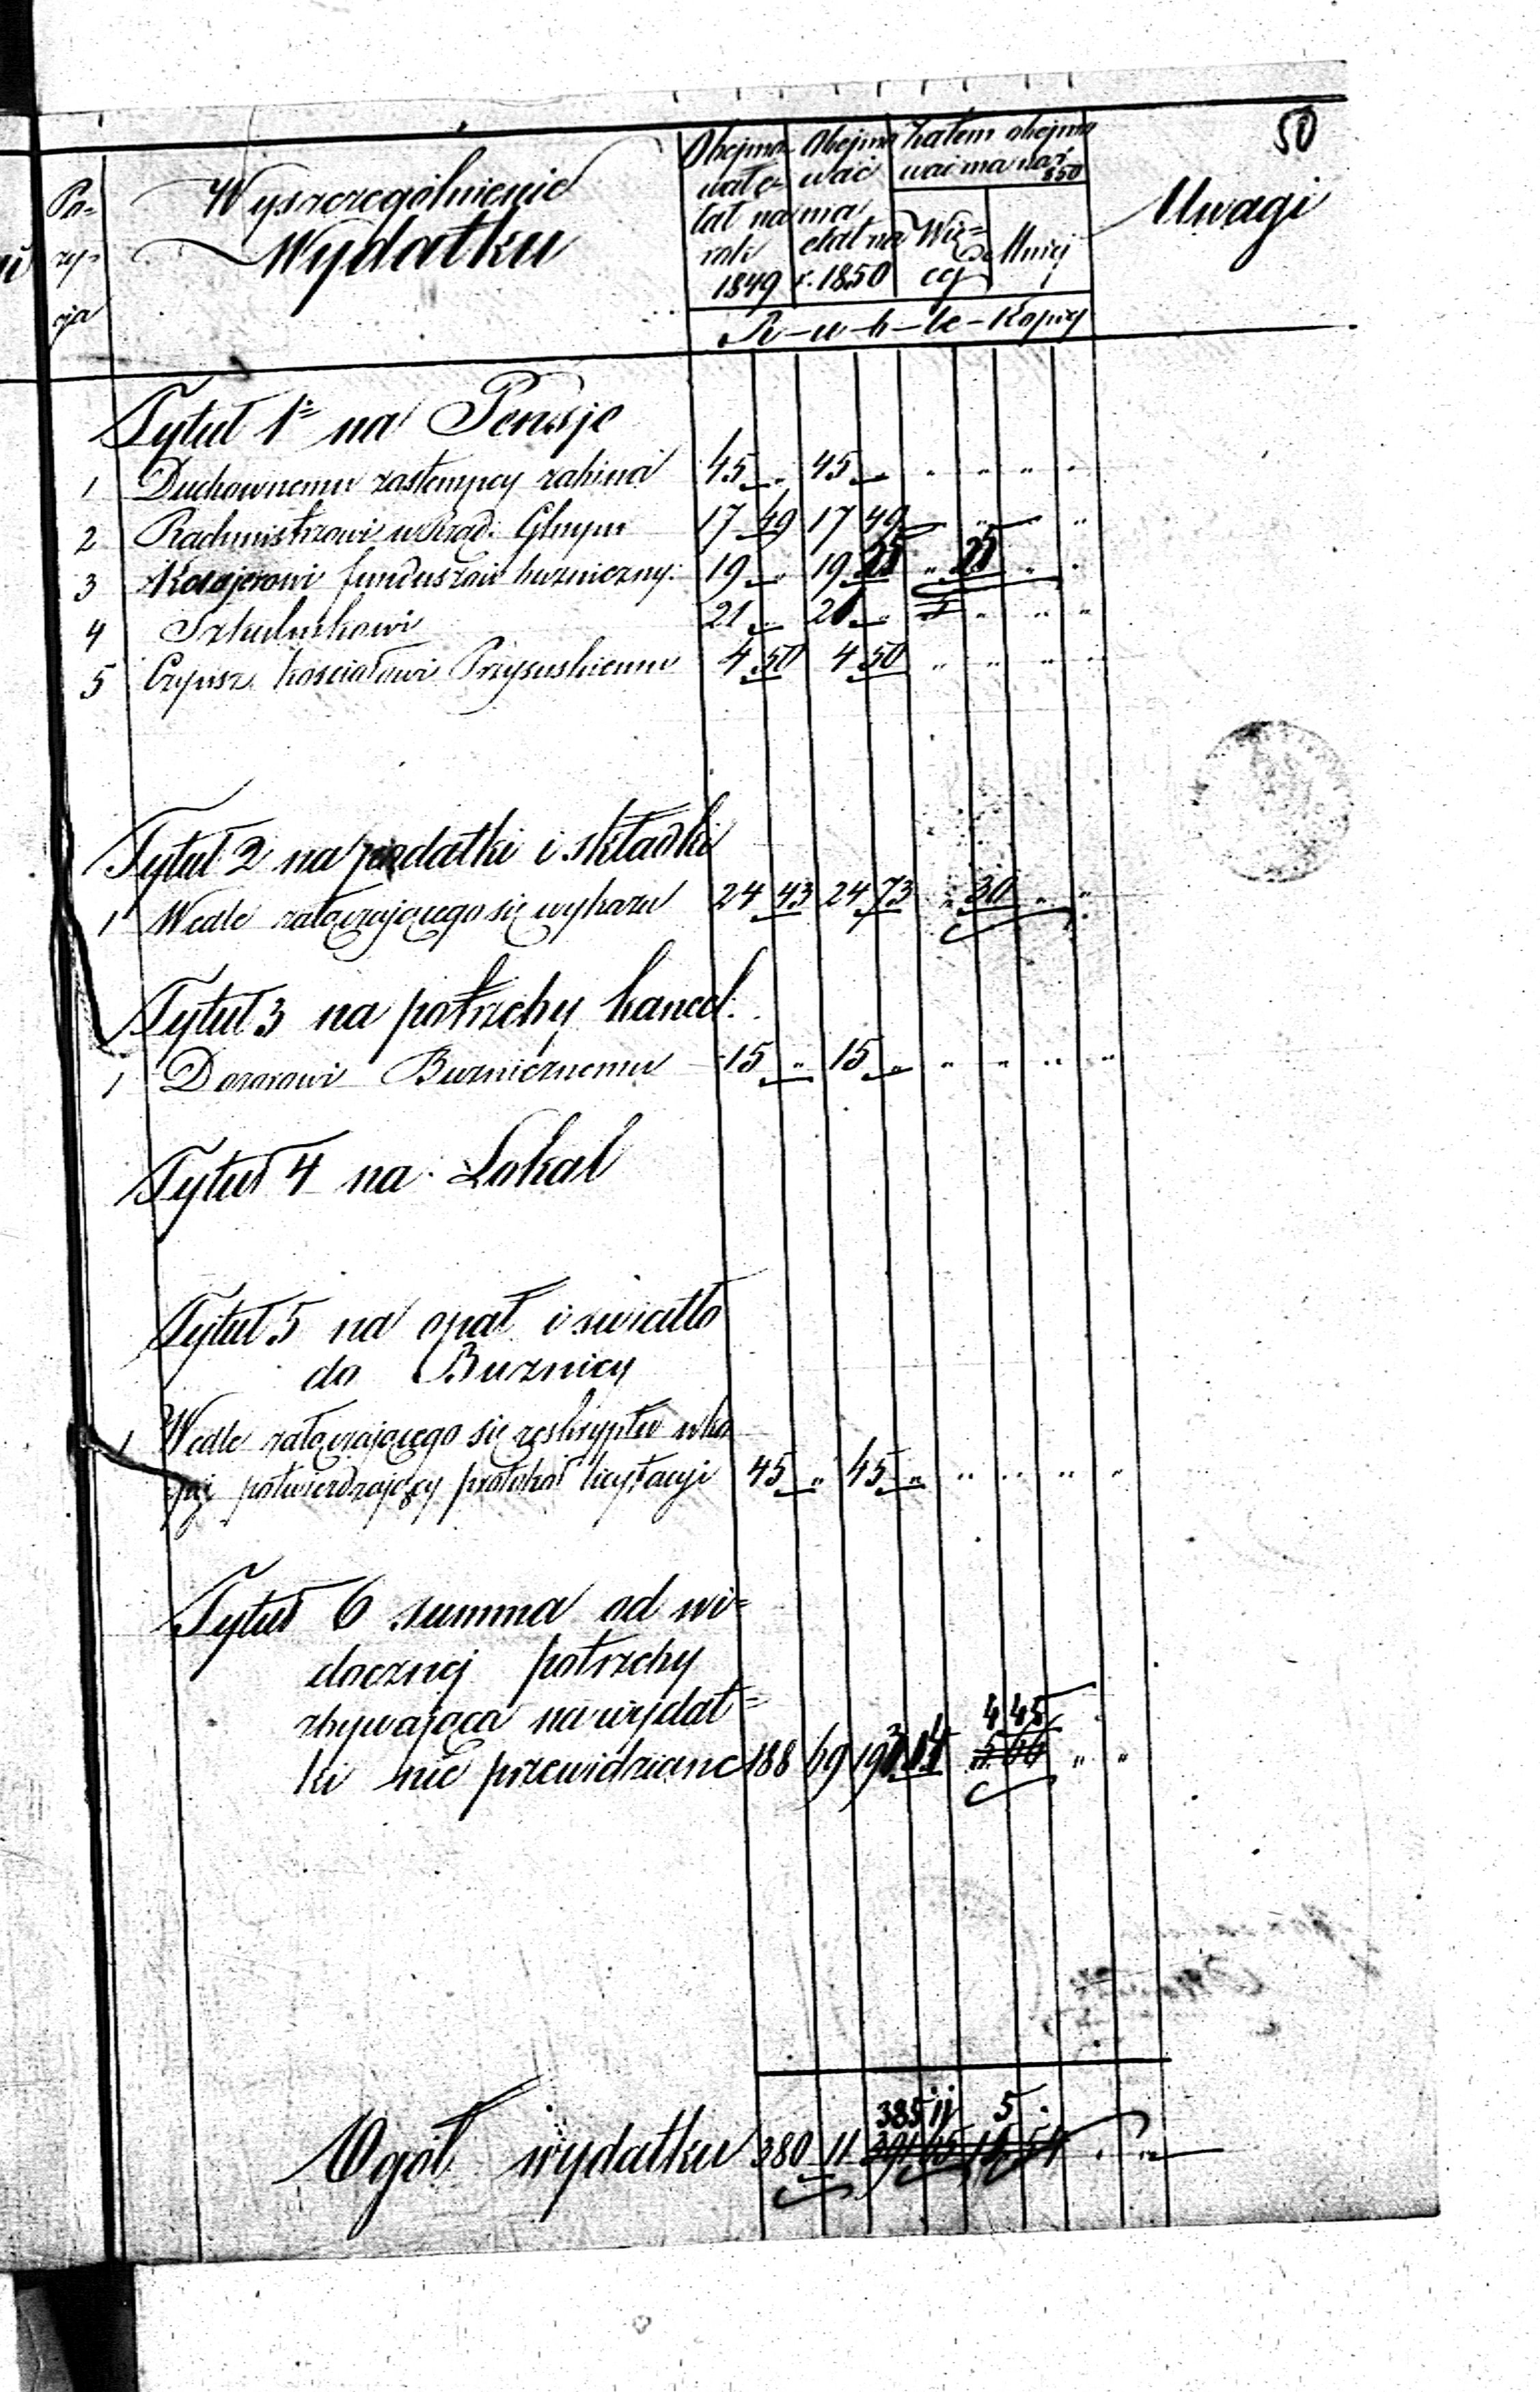 50
Po=
zy=
cja
Wyszczególnienie
Wydatku
Obejmo-
wał e-
tat na
rok
1849
Obejmo
wać
ma
etat na
r. 1850
Zatem obejmo
wać ma na r.
850
Wię=
cej
Mniej
Uwagi
R-u-b-le-Kopiej
Tytuł 1= na Pensje
1 Duchownemu zastempcy rabina 45 „ 45 „ „ „ „ „
2 Rachmistrzowi w Rząd: Gbnym 17 49 17 49 „ „ „ „
3 Kassjerowi funduszów bużniczny: 19 „ 19 25 „ 25 „ „
4 Szkulnikowi 21 „ 21 „ „ „ „
5 Czynsz kościołowi Przysuskiemu 4 50 4 50 „ „ „ „
Tytuł 2 na podatki i składki
1 Wedle załączającego się wykazu 24 43 24 73 „ 30 „ „
Tytuł 3 na potrzeby kancel:
1 Dozorowi Bużnicznemu 15 „ 15 „ „ „ „ „
Tytuł 4 na Lokal
Tytuł 5 na opał i swiatło
do Bużnicy
1 Wedle załączającego się reskryptu w ko
pij potwierdzający protokoł licytacyi 45 „ 45 „ „ „ „ „
Tytuł 6 summa od wi=
docznej potrzeby
zbywająca na wydat=
4 45
ki nie przewidziane 188 69 193 14 „ „
385 11 5 „
Ogół wydatku 380 11 „ „